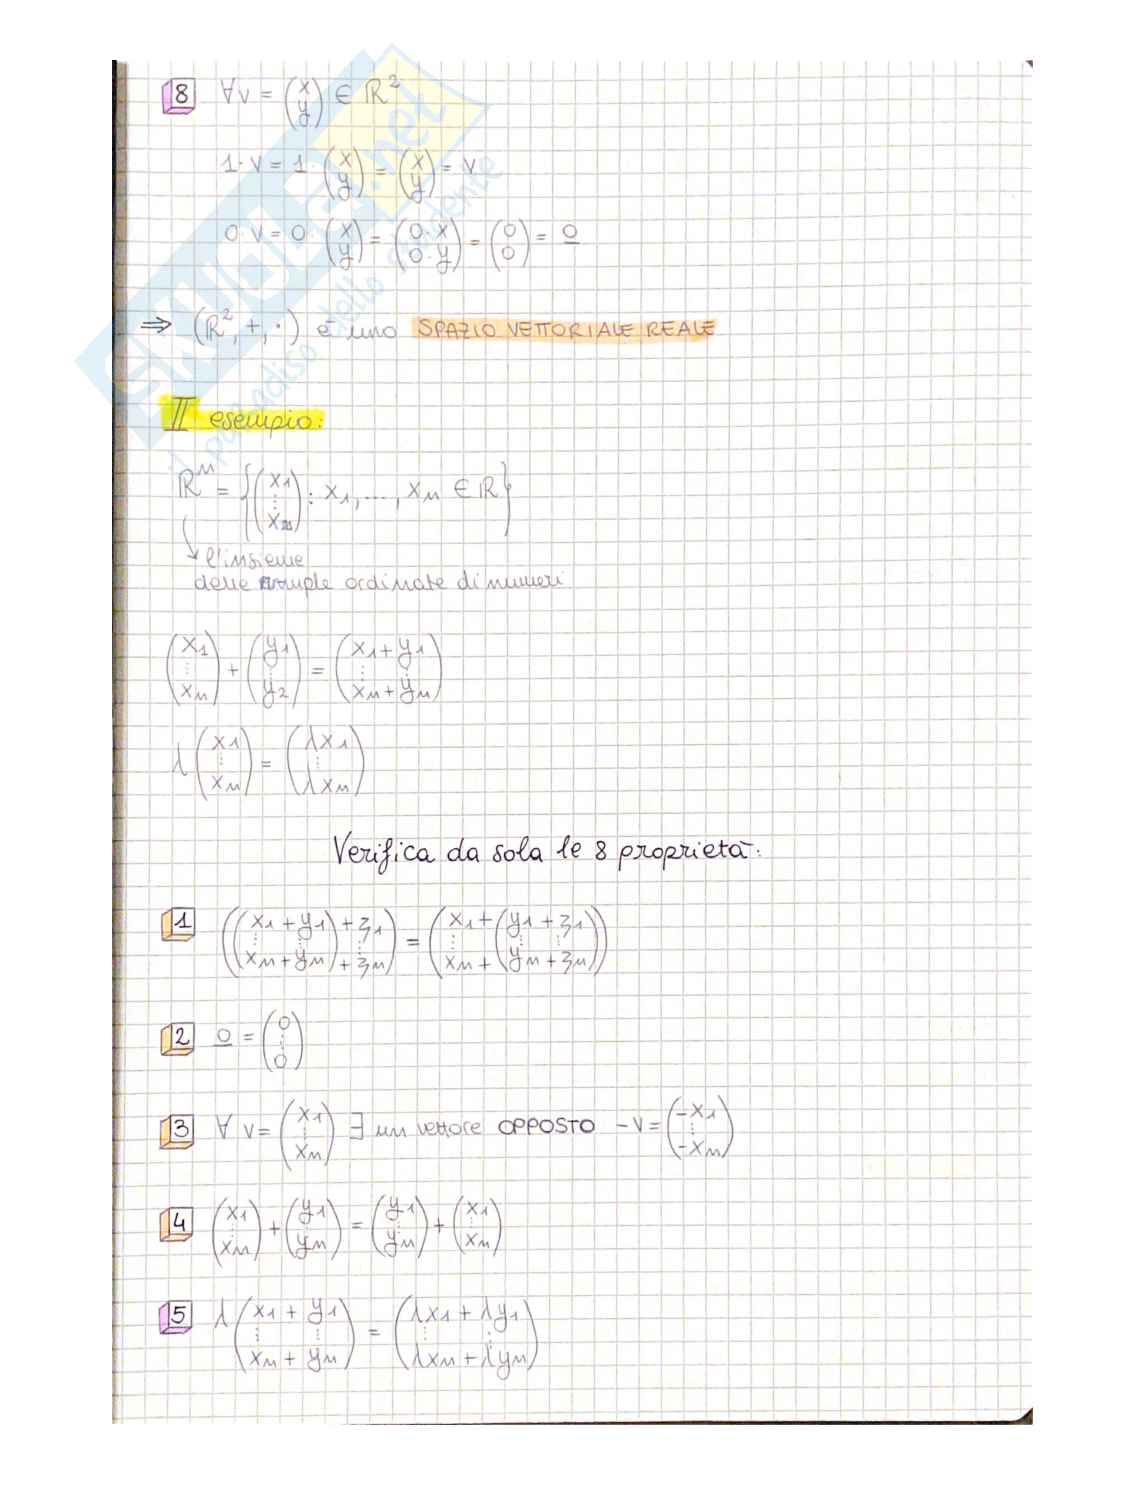 8 ∀v = (x y) ∈ ℝ²
1· v = 1 (x y) = (x y) = v
0 v = 0 (x y) = (0·x 0·y) = (0 0) = 0
⇒ (ℝ², +, ·) è uno SPAZIO VETTORIALE REALE
II esempio:
ℝⁿ = {(x₁ ⋮ xₙ) : x₁, ..., xₙ ∈ ℝ}
↳ l'insieme
delle nuple ordinate di numeri
(x₁ ⋮ xₙ) + (y₁ ⋮ y₂) = (x₁+y₁ ⋮ xₙ+yₙ)
λ (x₁ ⋮ xₙ) = (λx₁ ⋮ λxₙ)
Verifica da sola le 8 proprietà:
1 ((x₁+y₁ ⋮ xₙ+yₙ) +z₁ ⋮ +zₙ) = (x₁+ ⋮ xₙ+ (y₁+z₁ ⋮ yₙ+zₙ))
2 0 = (0 ⋮ 0)
3 ∀ v = (x₁ ⋮ xₙ) ∃ un vettore OPPOSTO -v = (-x₁ ⋮ -xₙ)
4 (x₁ ⋮ xₙ) + (y₁ ⋮ yₙ) = (y₁ ⋮ yₙ) + (x₁ ⋮ xₙ)
5 λ (x₁+y₁ ⋮ xₙ+yₙ) = (λx₁+λy₁ ⋮ λxₙ+λyₙ)
SKUOLA.net
il paradiso dello studente